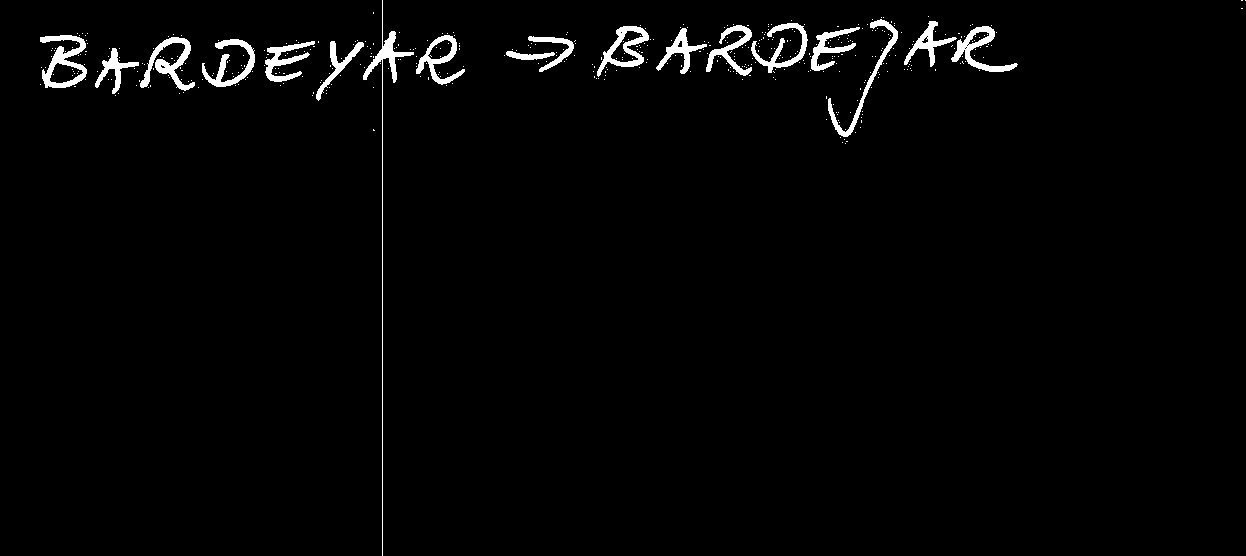 BARDEYAR → BARDEJAR